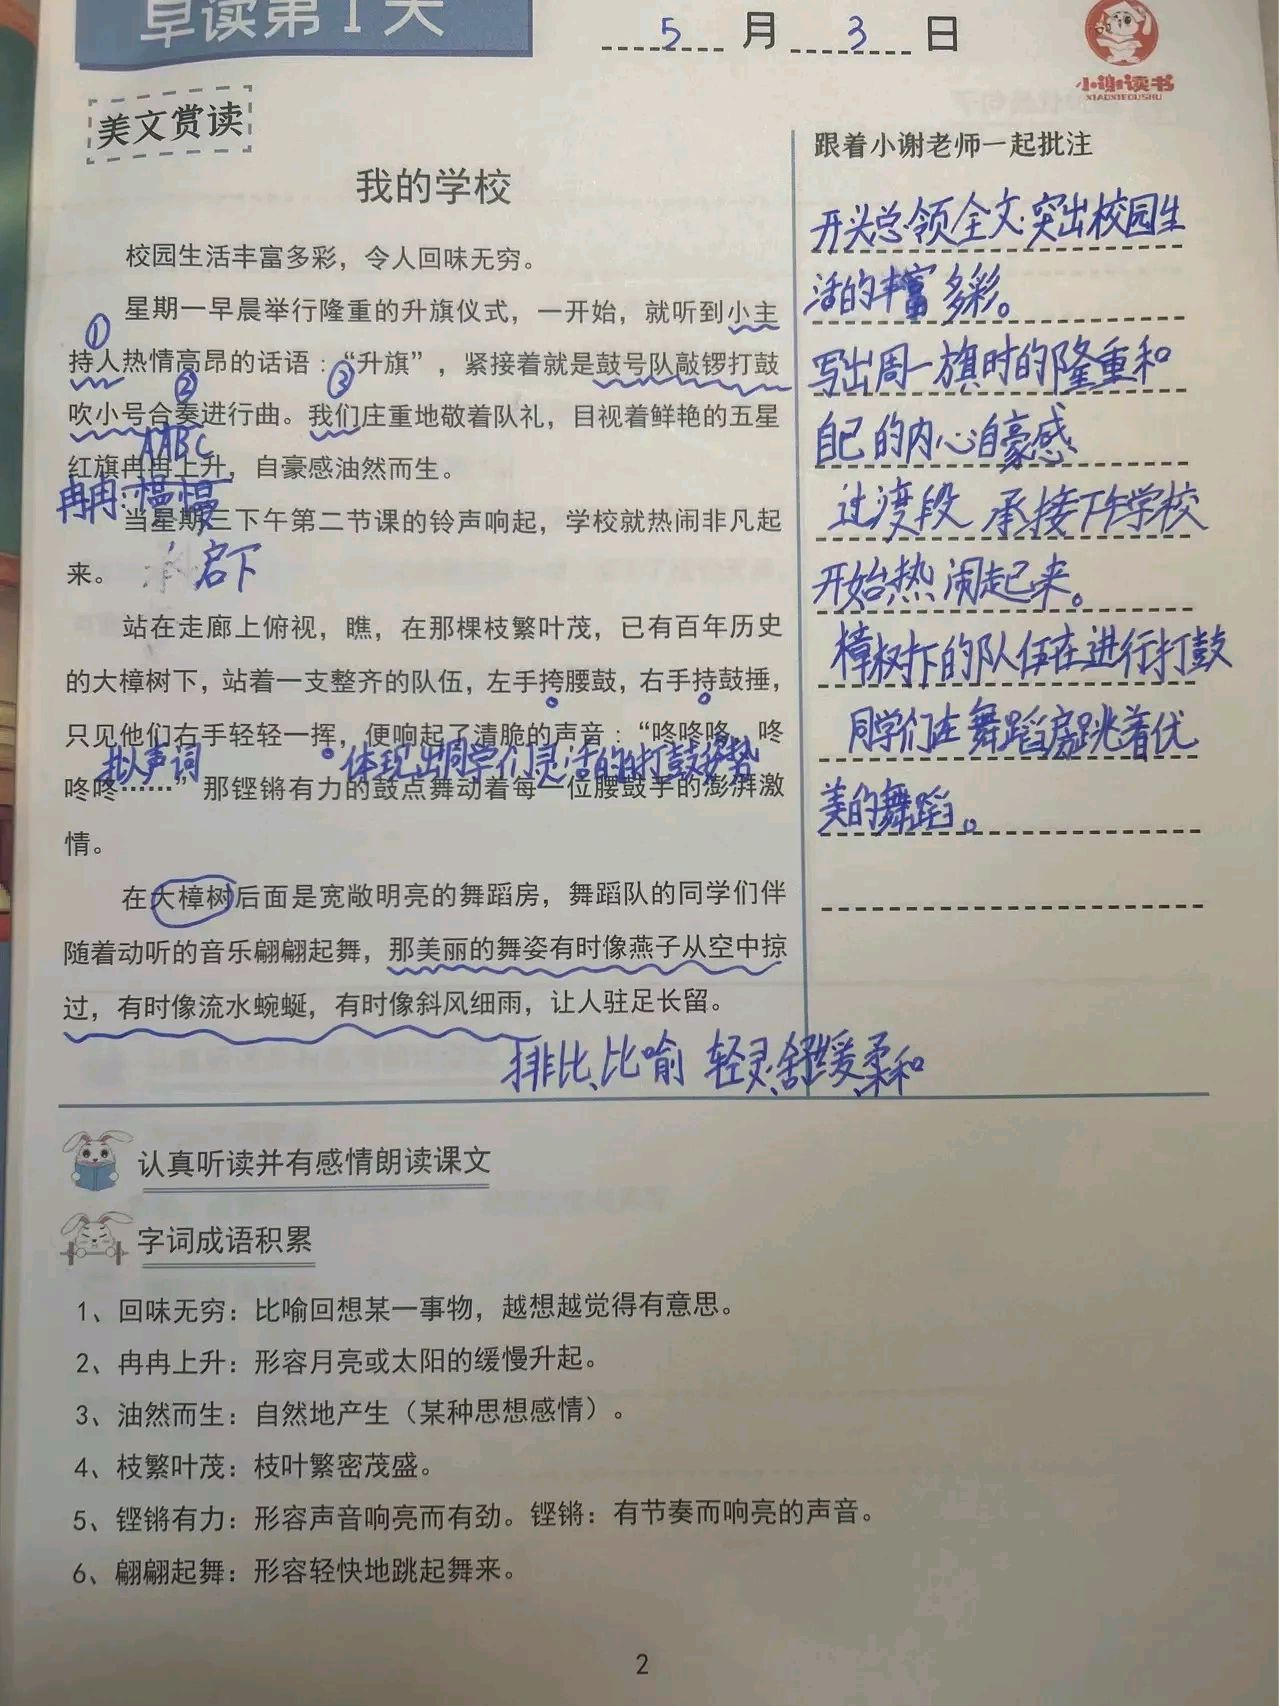 早读第1天
5月3日
小谢读书
XIAOXIEDUSHU
美文赏读
我的学校
校园生活丰富多彩，令人回味无穷。
星期一早晨举行隆重的升旗仪式，一开始，就听到小主
①
持人热情高昂的话语：“升旗”，紧接着就是鼓号队敲锣打鼓
② ③
吹小号合奏进行曲。我们庄重地敬着队礼，目视着鲜艳的五星
AABC
红旗冉冉上升，自豪感油然而生。
冉冉：慢慢
当星期三下午第二节课的铃声响起，学校就热闹非凡起
来。
承启下
站在走廊上俯视，瞧，在那棵枝繁叶茂，已有百年历史
的大樟树下，站着一支整齐的队伍，左手挎腰鼓，右手持鼓捶，
只见他们右手轻轻一挥，便响起了清脆的声音：“咚咚咚、咚
拟声词
体现出同学们灵活的打鼓姿势
咚咚……”那铿锵有力的鼓点舞动着每一位腰鼓手的澎湃激
情。
在大樟树后面是宽敞明亮的舞蹈房，舞蹈队的同学们伴
随着动听的音乐翩翩起舞，那美丽的舞姿有时像燕子从空中掠
过，有时像流水蜿蜒，有时像斜风细雨，让人驻足长留。
排比、比喻 轻灵、舒缓、柔和
跟着小谢老师一起批注
开头总领全文·突出校园生
活的丰富多彩。
写出周一旗时的隆重和
自己的内心自豪感
过渡段 承接下午学校
开始热闹起来。
樟树下的队伍在进行打鼓
同学们在舞蹈房跳着优
美的舞蹈。
认真听读并有感情朗读课文
字词成语积累
1、回味无穷：比喻回想某一事物，越想越觉得有意思。
2、冉冉上升：形容月亮或太阳的缓慢升起。
3、油然而生：自然地产生（某种思想感情）。
4、枝繁叶茂：枝叶繁密茂盛。
5、铿锵有力：形容声音响亮而有劲。铿锵：有节奏而响亮的声音。
6、翩翩起舞：形容轻快地跳起舞来。
2